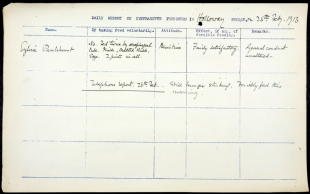 DAILY REPORT OF SUFFRAGETTE PRISONERS IN Holloway PRISON, on 25th Feb, 1913
Name.
If taking food voluntarily.
Attitude.
Effect, if any, of Forcible Feeding.
Remarks.
Sylvia Pankhurst
No. Fed twice by oesophageal tube. Milk, Eggs. 2 pints in all.
Fairly satisfactory
General conduct unaltered.
Telephone report, 26th Feb. Still hunger striking. Forcibly fed this morning.